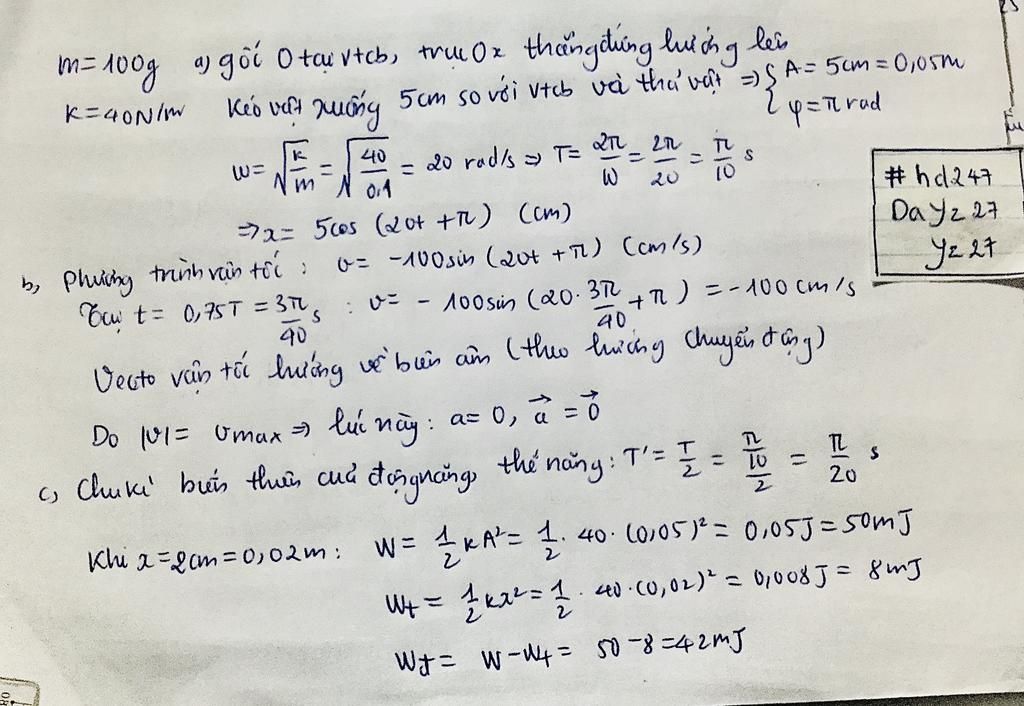 m=100g a) gốc O tại vtcb, trục Ox thẳng đứng hướng lên
K=40N/m Kéo vật xuống 5cm so với vtcb và thả vật ⇒ { A= 5cm = 0,05m
φ=π rad
ω= √(k/m) = √(40/0,1) = 20 rad/s ⇒ T= 2π/ω = 2π/20 = π/10 s
⇒ x= 5cos (20t +π) (cm)
#hd247
DaYz27
Yz27
b, Phương trình vận tốc : v= -100sin (20t +π) (cm/s)
Tại t= 0,75T = 3π/40 s : v= - 100sin (20. 3π/40 +π ) = -100 cm/s
Vecto vận tốc hướng về biên âm (theo hướng chuyển động)
Do |v|= vmax ⇒ lúc này: a= 0, a⃗ = 0⃗
c, Chu kì biến thiên của động năng, thế năng: T'= T/2 = (π/10)/2 = π/20 s
Khi x=2cm=0,02m: W= 1/2 kA²= 1/2 . 40. (0,05)² = 0,05J=50mJ
Wt = 1/2 kx² = 1/2 . 40.(0,02)² = 0,008J= 8mJ
Wđ = W-Wt = 50-8=42mJ